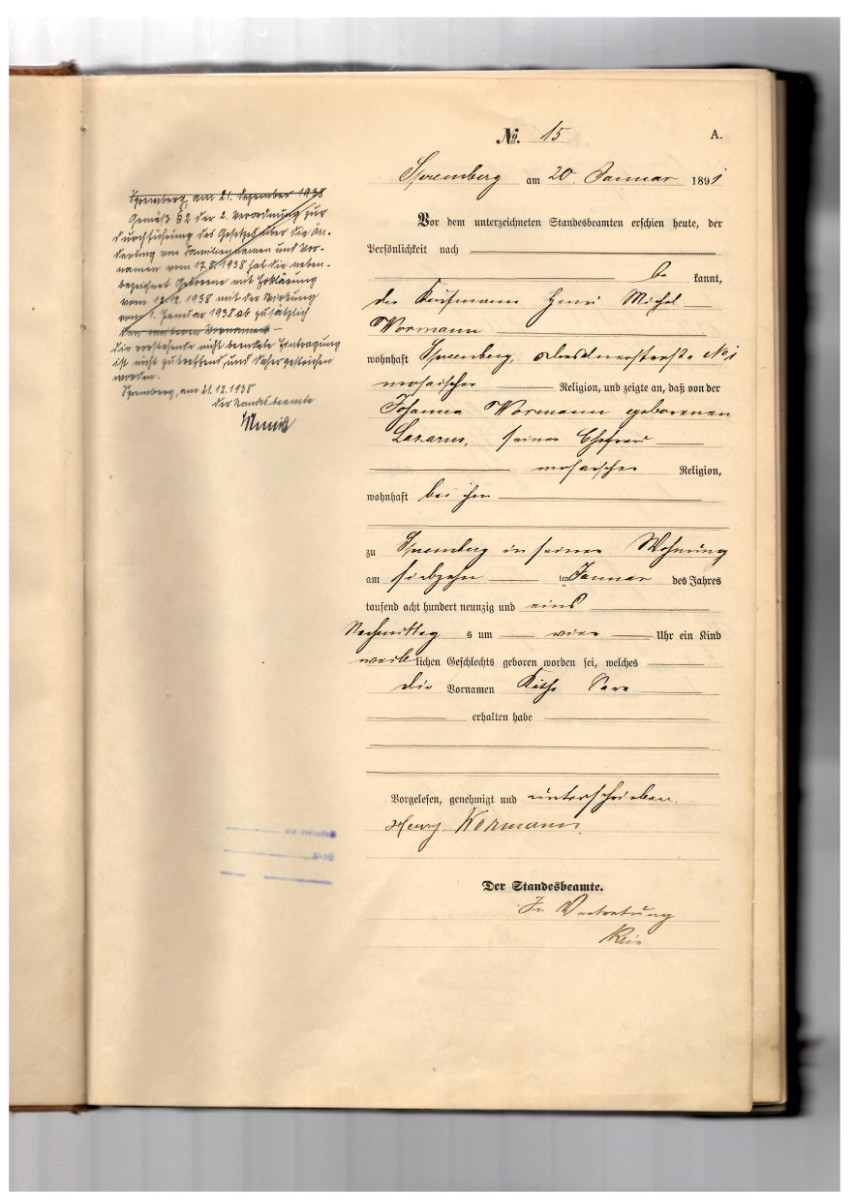 No. 15
A.
Spremberg am 20. Januar 1891
Vor dem unterzeichneten Standesbeamten erschien heute, der
Persönlichkeit nach
be kannt,
der Kaufmann Henri Michel
Wormann
wohnhaft Spremberg, No 1
mosaischer Religion, und zeigte an, daß von der
Johanna Wormann geborenen
Lazarus, seiner Ehefrau
mosaischer Religion,
wohnhaft bei ihm
zu Spremberg in seiner Wohnung
am siebzehn ten Januar des Jahres
tausend acht hundert neunzig und eins
Nachmittag s um vier Uhr ein Kind
weiblichen Geschlechts geboren worden sei, welches
die Vornamen Käthe Sara
erhalten habe
Vorgelesen, genehmigt und unterschrieben.
Henry Wormann.
Der Standesbeamte.
In Vertretung
Spremberg, am 21. Dezember 1938
Gemäß § 2 der 2. Verordnung zur
Durchführung des Gesetzes über die Än-
derung von Familiennamen und Vor-
namen vom 17.8.1938 hat die neben-
bezeichnet Geborene mit Erklärung
vom 12.12.1938 mit der Wirkung
vom 1. Januar 1938 ab zusätzlich
den weiteren Vornamen –
Die vorstehende nicht beendete Eintragung
ist nicht zutreffend und daher gestrichen
worden.
Spremberg, am 21.12.1938
Der Standesbeamte